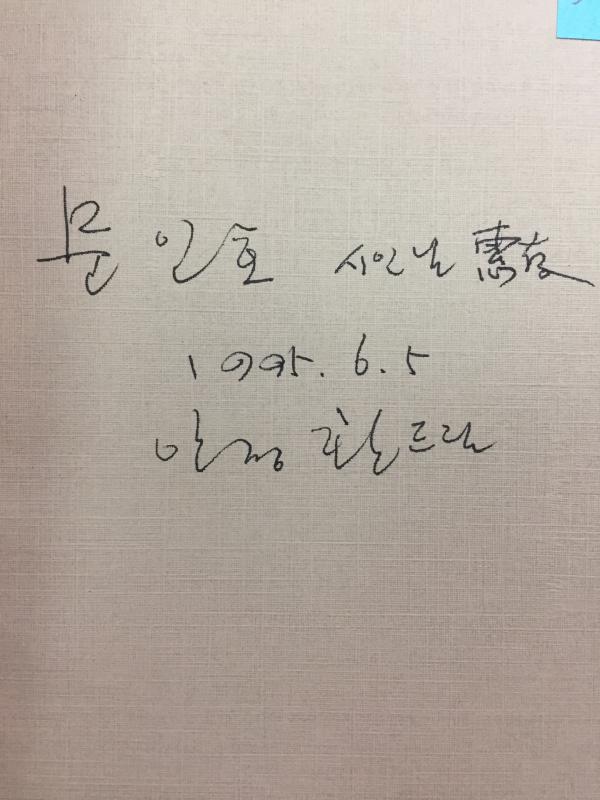 문 인호 시인님 惠存
1995. 6. 5
안정환 드림